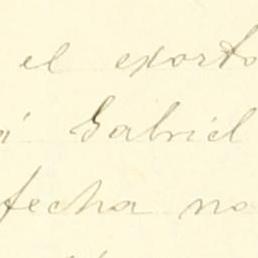 el exorto
a' Gabriel
fecha no